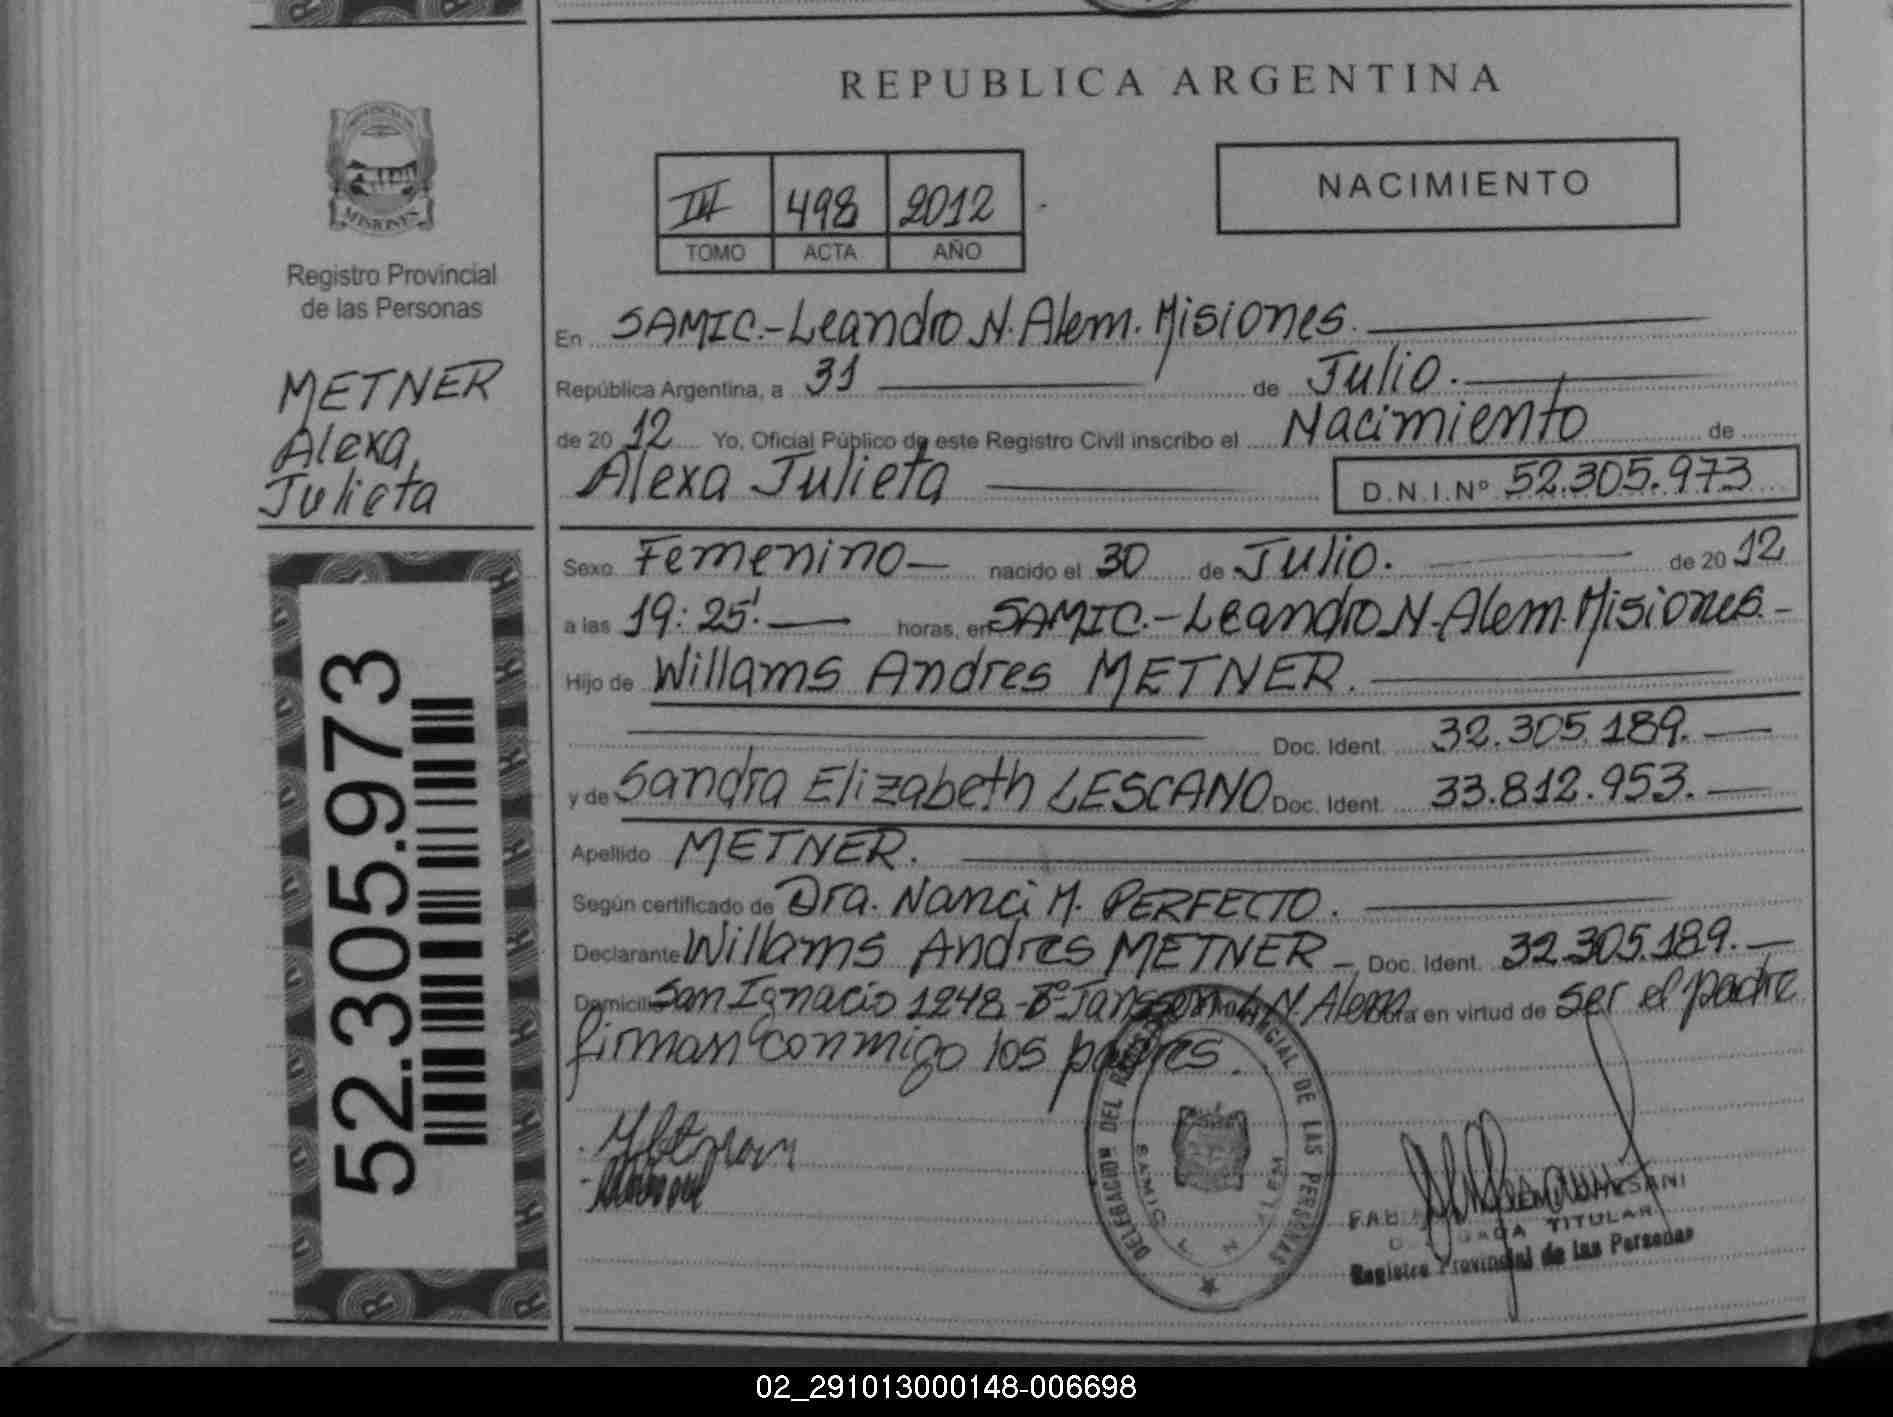 REPUBLICA ARGENTINA
MISIONES
Registro Provincial
de las Personas
METNER
Alexa
Julieta
52.305.973
III 498 2012
TOMO ACTA AÑO
NACIMIENTO
En SAMIC.-Leandro N. Alem. Misiones.
República Argentina, a 31 de Julio.
de 20 12 Yo, Oficial Público de este Registro Civil inscribo el Nacimiento de
Alexa Julieta D.N.I.Nº 52.305.973
Sexo Femenino nacido el 30 de Julio. de 20 12
a las 19:25'. horas, en SAMIC.-Leandro N. Alem. Misiones.-
Hijo de Willams Andres METNER.
Doc. Ident. 32.305.189.
y de Sandra Elizabeth LESCANO Doc. Ident. 33.812.953.
Apellido METNER.
Según certificado de Dra. Nanci M. PERFECTO.
Declarante Willams Andres METNER - Doc. Ident. 32.305.189.
Domicilio San Ignacio 1248 - Bº Janssen L.N. Alem Obra en virtud de ser el padre
firman conmigo los padres.
DELEGACION DEL REGISTRO PROVINCIAL DE LAS PERSONAS
SAMIC L N ALEM
TITULAR
Registro Provincial de las Personas
02_291013000148-006698